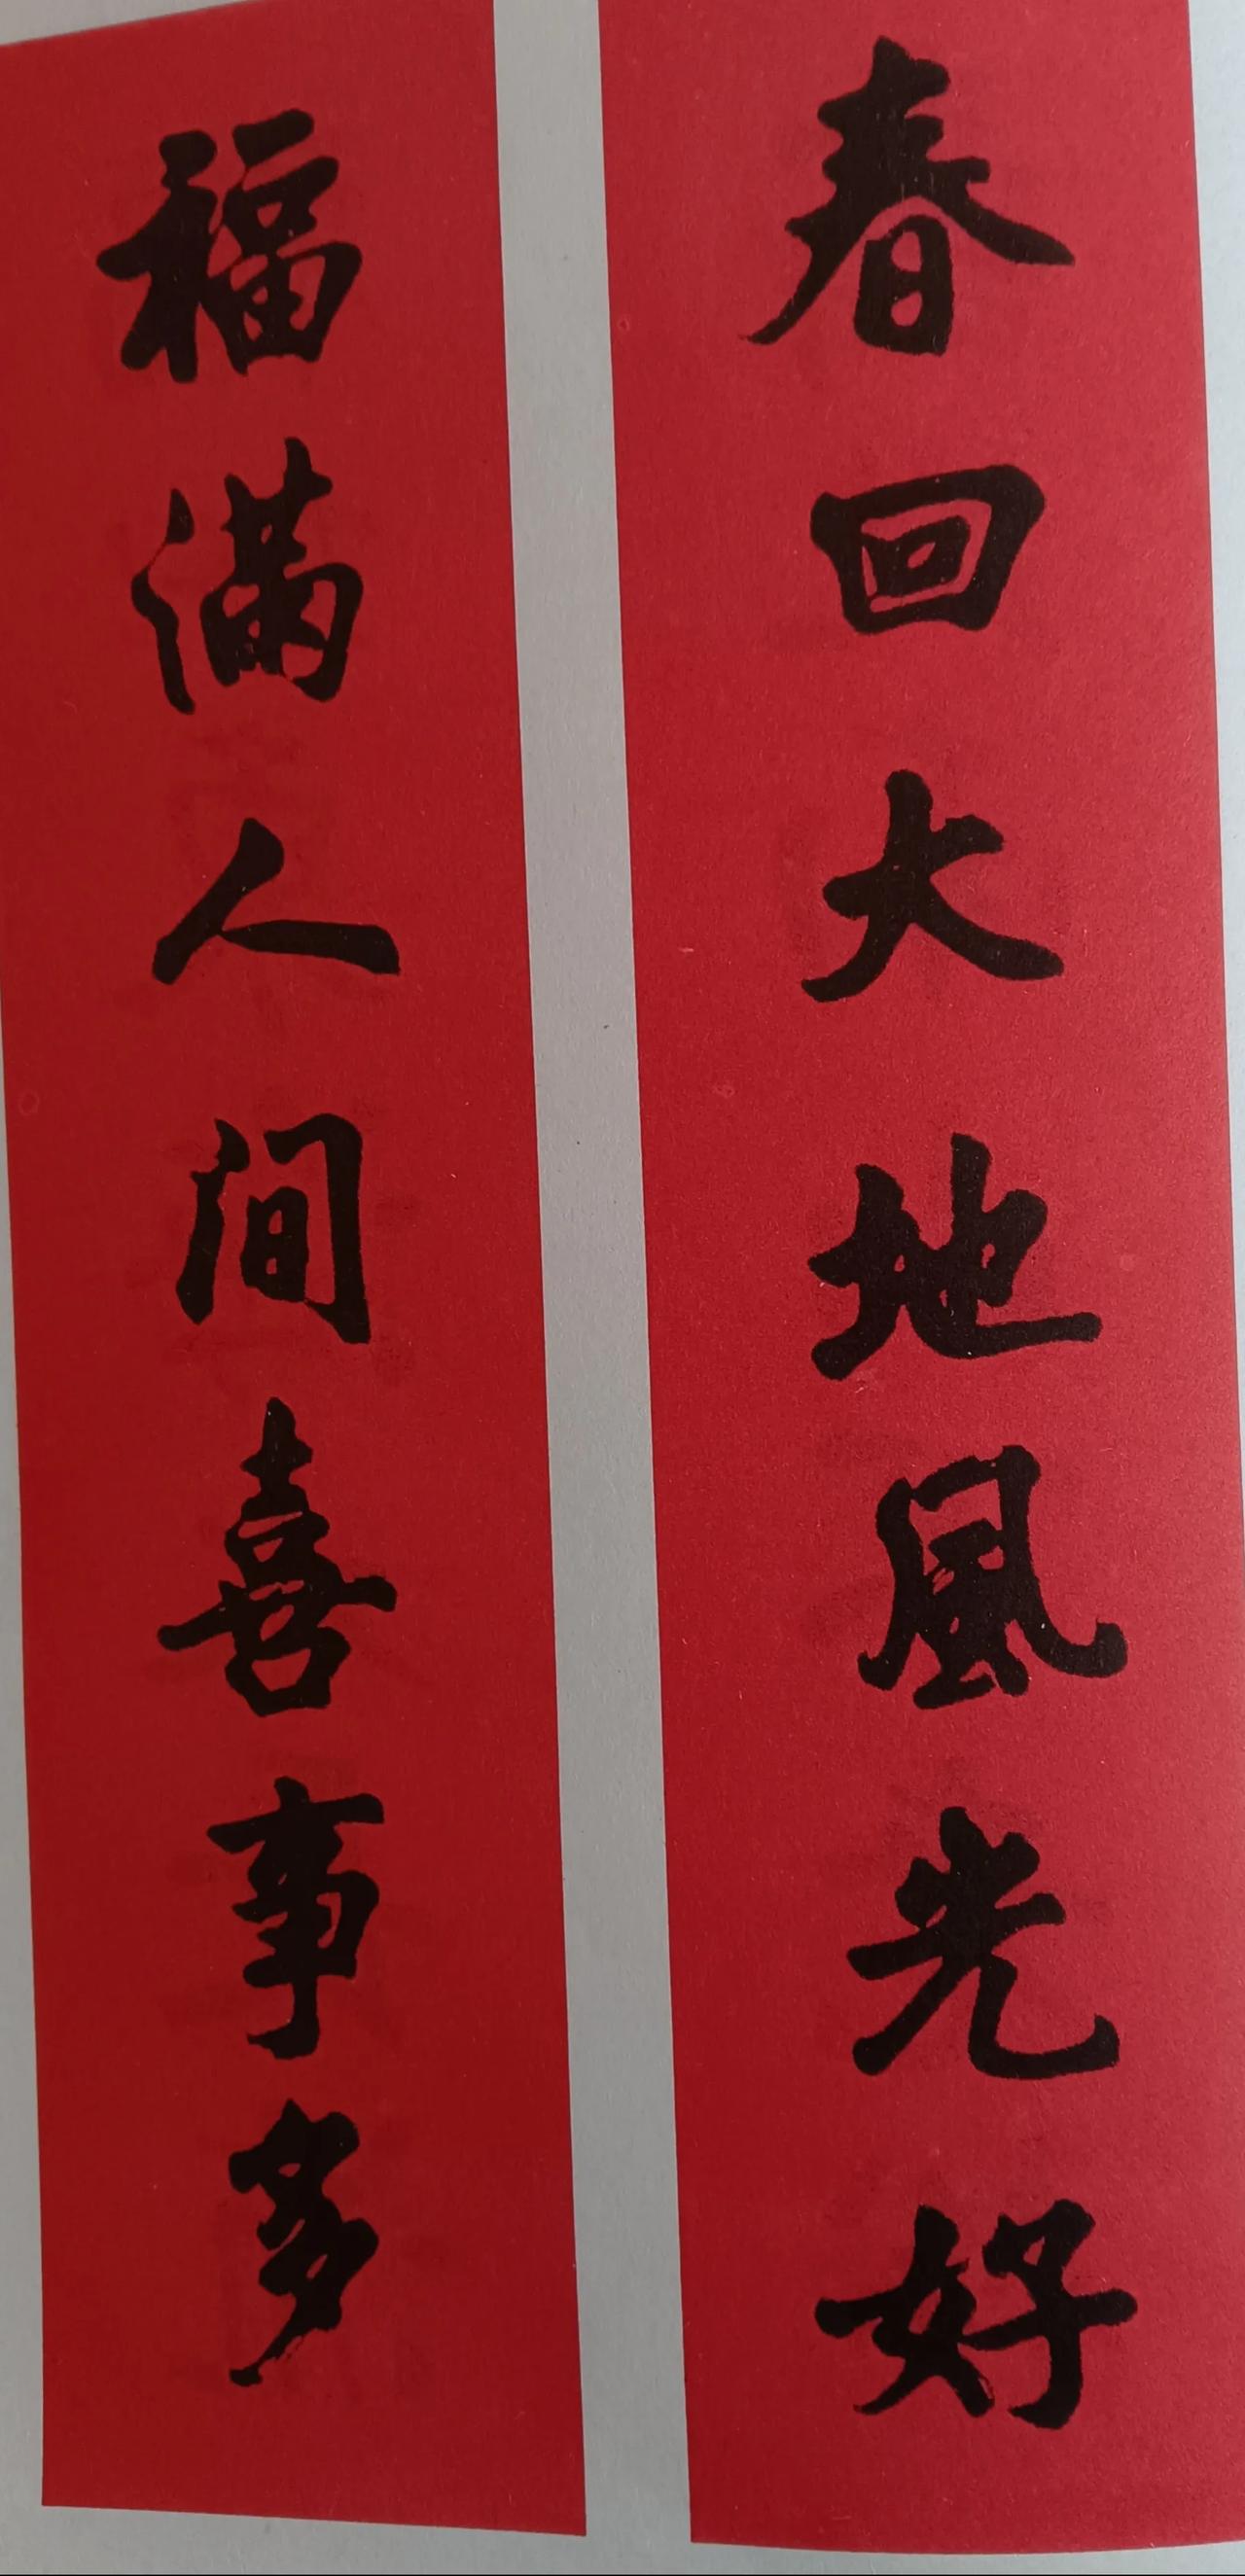 春回大地風光好
福满人间喜事多